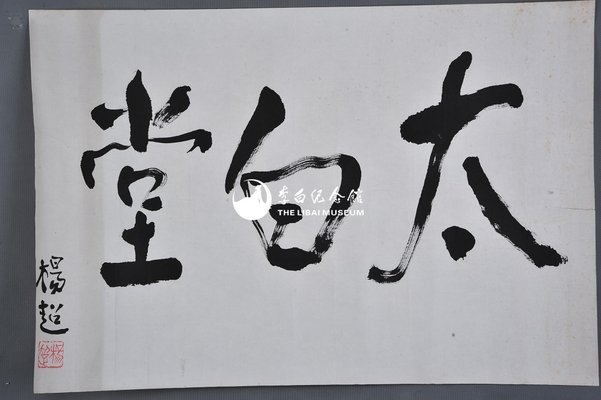 太白堂
楊超
李白纪念馆
THE LIBAI MUSEUM